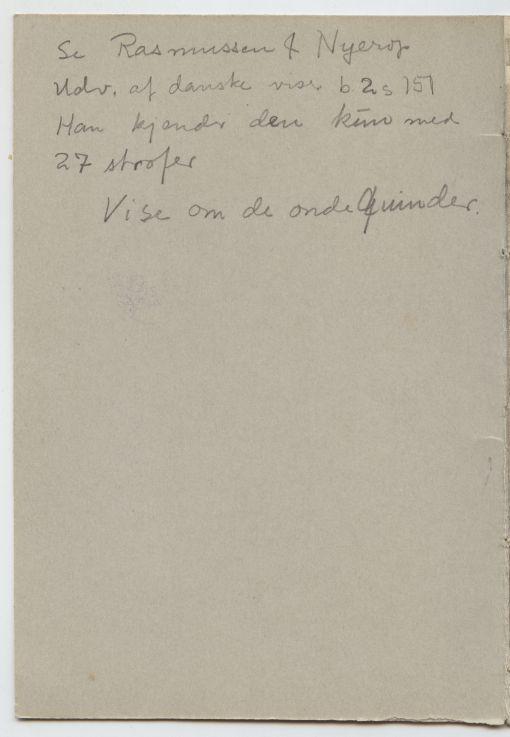 Se Rasmussen & Nyerop
Udv. af danske viser b. 2 s 151
Han kjender den kun med
27 strofer
Vise om de onde Quinder.